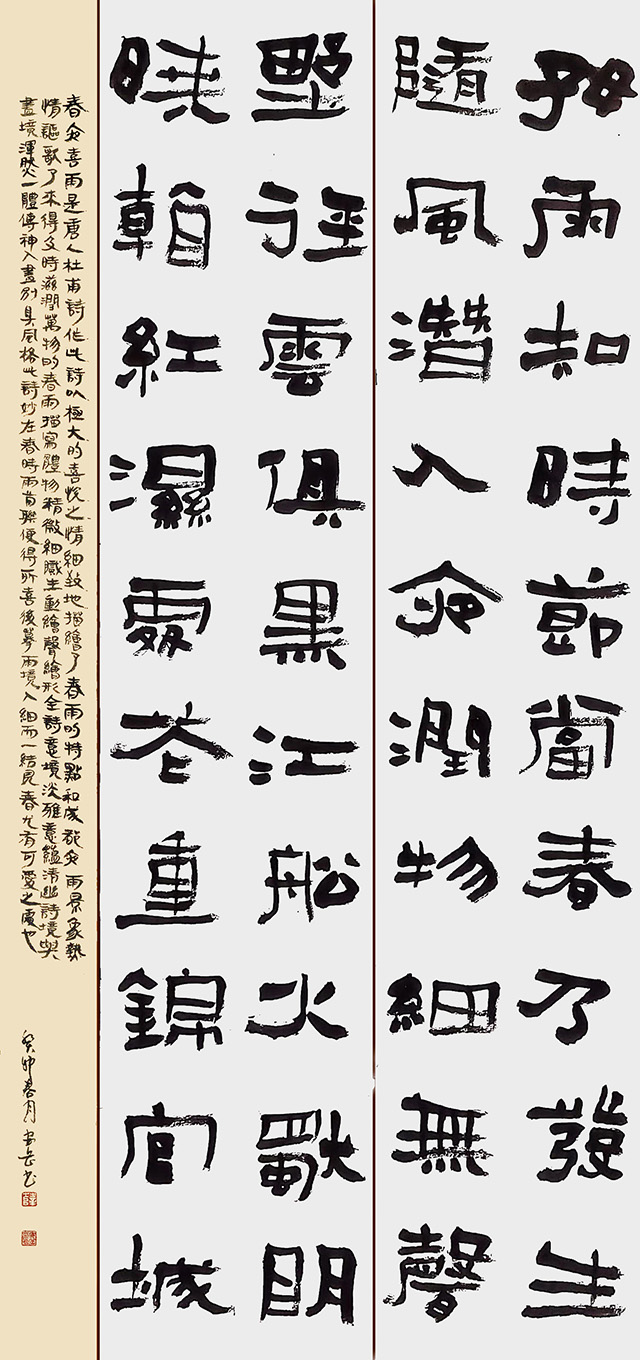 好雨知時節當春乃發生
隨風潛入夜潤物細無聲
野徑雲俱黑江船火獨明
曉看紅濕處花重錦官城
春夜喜雨是唐人杜甫詩作此詩以極大的喜悅之情細致地描繪了春雨的特點和成都夜雨景象熱
情謳歌了來得及時滋潤萬物的春雨描寫體物精微細膩生動繪聲繪形全詩意境淡雅意蘊清幽詩境與
畫境渾然一體傳神入畫別具風格此詩妙在春時雨首聯便得所喜後摹雨境入細而一結見春尤有可愛之處也
癸卯春月